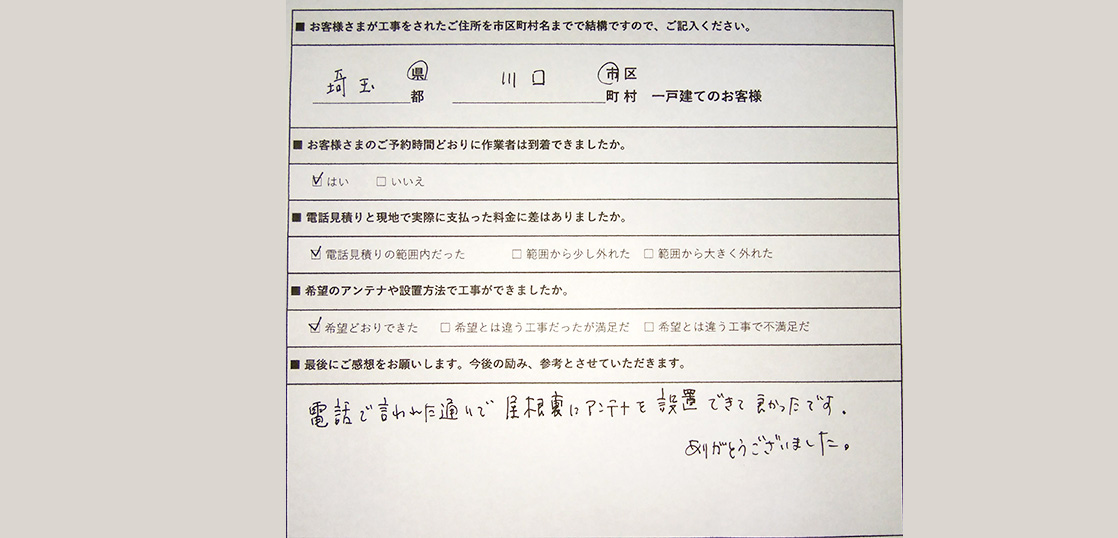 ■ お客様さまが工事をされたご住所を市区町村名までで結構ですので、ご記入ください。
埼玉 県 川口 市区
都 町村 一戸建てのお客様
■ お客様さまのご予約時間どおりに作業者は到着できましたか。
☑ はい □ いいえ
■ 電話見積りと現地で実際に支払った料金に差はありましたか。
☑ 電話見積りの範囲内だった □ 範囲から少し外れた □ 範囲から大きく外れた
■ 希望のアンテナや設置方法で工事ができましたか。
☑ 希望どおりできた □ 希望とは違う工事だったが満足だ □ 希望とは違う工事で不満足だ
■ 最後にご感想をお願いします。今後の励み、参考とさせていただきます。
電話で言われた通りで 屋根裏にアンテナを 設置 できて 良かったです。
ありがとうございました。